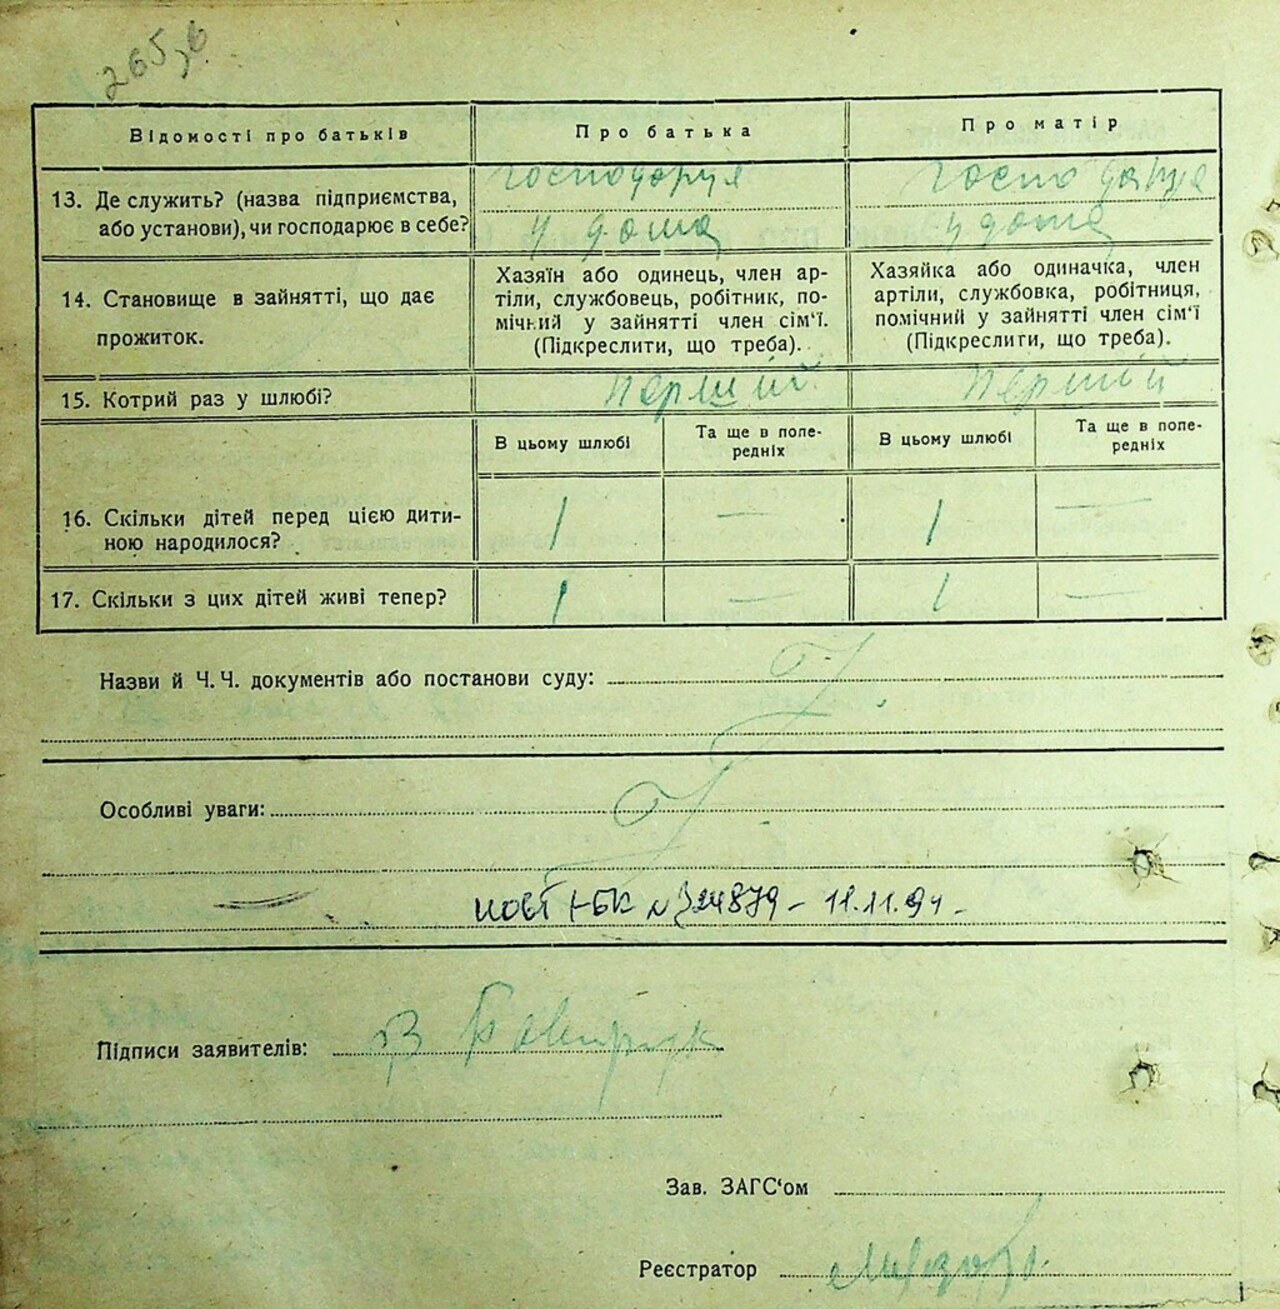 265,6
Відомості про батьків
Про батька
Про матір
13. Де служить? (назва підприємства,
або установи), чи господарює в себе?
господарця
у дома
господарця
у дома
14. Становище в зайнятті, що дає
прожиток.
Хазяїн або одинець, член ар-
тіли, службовець, робітник, по-
мічний у зайнятті член сім'ї.
(Підкреслити, що треба).
Хазяйка або одиначка, член
артіли, службовка, робітниця,
помічний у зайнятті член сім'ї
(Підкреслити, що треба).
15. Котрий раз у шлюбі?
перший
перший
В цьому шлюбі
Та ще в попе-
редніх
В цьому шлюбі
Та ще в попе-
редніх
16. Скільки дітей перед цією дити-
ною народилося?
1
—
1
—
17. Скільки з цих дітей живі тепер?
1
—
1
—
Назви й Ч. Ч. документів або постанови суду:
Особливі уваги:
324879 – 11.11.94 –
Підписи заявителів:
Зав. ЗАГС'ом
Реєстратор